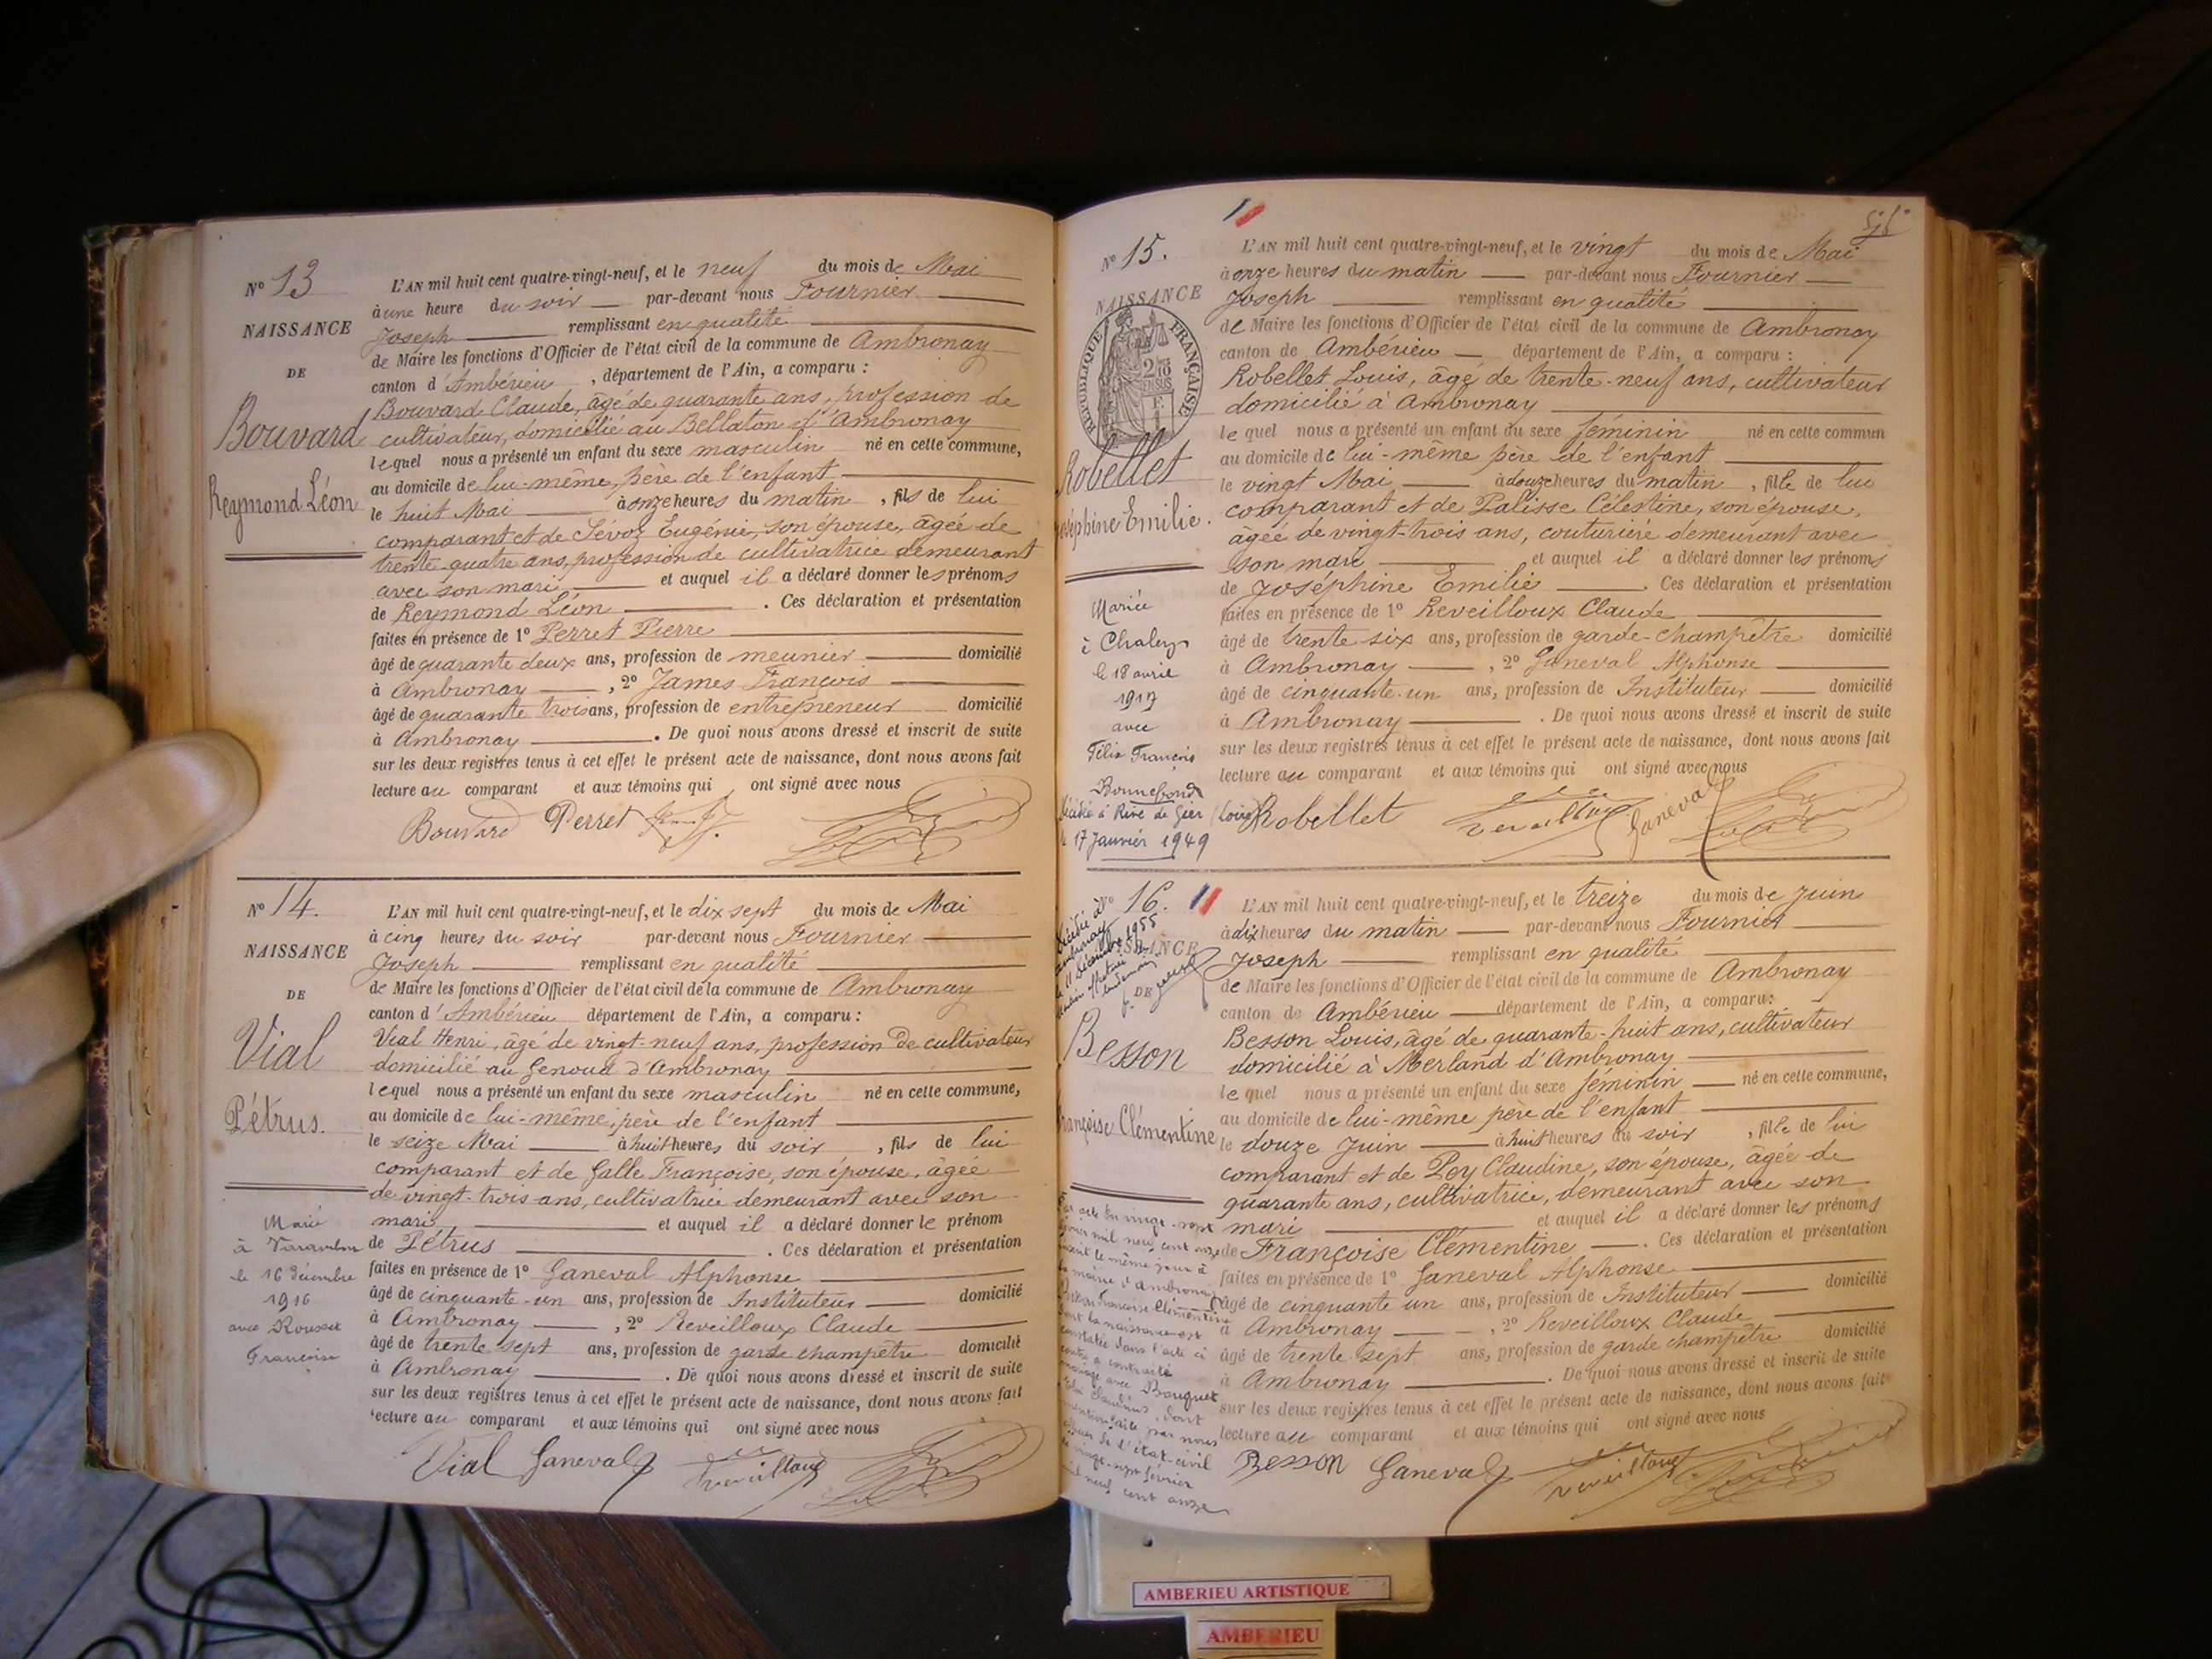 N° 13
NAISSANCE
DE
Bouvard
Reymond Léon
L'AN mil huit cent quatre-vingt-neuf, et le neuf du mois de Mai
à une heure du soir par-devant nous Fournier
Joseph remplissant en qualité
de Maire les fonctions d'Officier de l'état civil de la commune de Ambronay
canton d'Ambérieu, département de l'Ain, a comparu :
Bouvard Claude, âgé de quarante ans, profession de
cultivateur, domicilié au Bellaton d'Ambronay
lequel nous a présenté un enfant du sexe masculin né en cette commune,
au domicile de lui-même, père de l'enfant
le huit Mai à onze heures du matin, fils de lui
comparant et de Sévoz Eugénie, son épouse, âgée de
trente-quatre ans, profession de cultivatrice demeurant
avec son mari et auquel il a déclaré donner les prénoms
de Reymond Léon. Ces déclaration et présentation
faites en présence de 1° Perret Pierre
âgé de quarante deux ans, profession de meunier domicilié
à Ambronay, 2° James François
âgé de quarante trois ans, profession de entrepreneur domicilié
à Ambronay. De quoi nous avons dressé et inscrit de suite
sur les deux registres tenus à cet effet le présent acte de naissance, dont nous avons fait
lecture au comparant et aux témoins qui ont signé avec nous
Bouvard Perret
N° 14.
NAISSANCE
DE
Vial
Pétrus.
Marié
à Varambon
le 16 décembre
1916
avec Rousset
Françoise
L'AN mil huit cent quatre-vingt-neuf, et le dix sept du mois de Mai
à cinq heures du soir par-devant nous Fournier
Joseph remplissant en qualité
de Maire les fonctions d'Officier de l'état civil de la commune de Ambronay
canton d'Ambérieu département de l'Ain, a comparu :
Vial Henri, âgé de vingt-neuf ans, profession de cultivateur
domicilié au Genoud d'Ambronay
lequel nous a présenté un enfant du sexe masculin né en cette commune,
au domicile de lui-même, père de l'enfant
le seize Mai à huit heures du soir, fils de lui
comparant et de Galle Françoise, son épouse, âgée
de vingt-trois ans, cultivatrice demeurant avec son
mari, et auquel il a déclaré donner le prénom
de Pétrus. Ces déclaration et présentation
faites en présence de 1° Ganeval Alphonse
âgé de cinquante-un ans, profession de Instituteur domicilié
à Ambronay, 2° Reveilloux Claude
âgé de trente sept ans, profession de garde champêtre domicilié
à Ambronay. De quoi nous avons dressé et inscrit de suite
sur les deux registres tenus à cet effet le présent acte de naissance, dont nous avons fait
lecture au comparant et aux témoins qui ont signé avec nous
Vial Ganeval Reveilloux
N° 15.
NAISSANCE
RÉPUBLIQUE FRANÇAISE
Robellet
Joséphine Emilie.
Mariée
à Chaley
le 18 avril
1917
avec
Félix François
Bonnefond
Décédée à Rive de Gier (Loire)
le 17 Janvier 1949
L'AN mil huit cent quatre-vingt-neuf, et le vingt du mois de Mai
à onze heures du matin par-devant nous Fournier
Joseph remplissant en qualité
de Maire les fonctions d'Officier de l'état civil de la commune de Ambronay
canton de Ambérieu département de l'Ain, a comparu :
Robellet Louis, âgé de trente-neuf ans, cultivateur
domicilié à Ambronay
lequel nous a présenté un enfant du sexe féminin né en cette commun
au domicile de lui-même père de l'enfant
le vingt Mai à douze heures du matin, fille de lui
comparant et de Palisse Célestine, son épouse,
âgée de vingt-trois ans, couturière demeurant avec
son mari et auquel il a déclaré donner les prénoms
de Joséphine Emilie. Ces déclaration et présentation
faites en présence de 1° Reveilloux Claude
âgé de trente six ans, profession de garde-champêtre domicilié
à Ambronay, 2° Ganeval Alphonse
âgé de cinquante-un ans, profession de Instituteur domicilié
à Ambronay. De quoi nous avons dressé et inscrit de suite
sur les deux registres tenus à cet effet le présent acte de naissance, dont nous avons fait
lecture au comparant et aux témoins qui ont signé avec nous
Robellet Reveilloux Ganeval
N° 16.
NAISSANCE
DE
Besson
Françoise Clémentine
Décédée à
Ambronay
le 11 Décembre 1955
Par acte du vingt-sept
février mil neuf cent onze
inscrit le même jour à
la mairie d'Ambronay
Besson Françoise Clémentine
dont la naissance est
constatée dans l'acte ci
contre a contracté
mariage avec Bouquet
Claudius, dont
mention faite par nous
officier de l'état-civil
le vingt-sept février
mil neuf cent onze
L'AN mil huit cent quatre-vingt-neuf, et le treize du mois de Juin
à dix heures du matin par-devant nous Fournier
Joseph remplissant en qualité
de Maire les fonctions d'Officier de l'état civil de la commune de Ambronay
canton de Ambérieu département de l'Ain, a comparu:
Besson Louis, âgé de quarante-huit ans, cultivateur
domicilié à Merland d'Ambronay
lequel nous a présenté un enfant du sexe féminin né en cette commune,
au domicile de lui-même père de l'enfant
le douze Juin à huit heures du soir, fille de lui
comparant et de Pey Claudine, son épouse, âgée de
quarante ans, cultivatrice, demeurant avec son
mari et auquel il a déclaré donner les prénoms
de Françoise Clémentine. Ces déclaration et présentation
faites en présence de 1° Ganeval Alphonse
âgé de cinquante un ans, profession de Instituteur domicilié
à Ambronay, 2° Reveilloux Claude
âgé de trente sept ans, profession de garde champêtre domicilié
à Ambronay. De quoi nous avons dressé et inscrit de suite
sur les deux registres tenus à cet effet le présent acte de naissance, dont nous avons fait
lecture au comparant et aux témoins qui ont signé avec nous
Besson Ganeval Reveilloux
AMBERIEU ARTISTIQUE
AMBERIEU